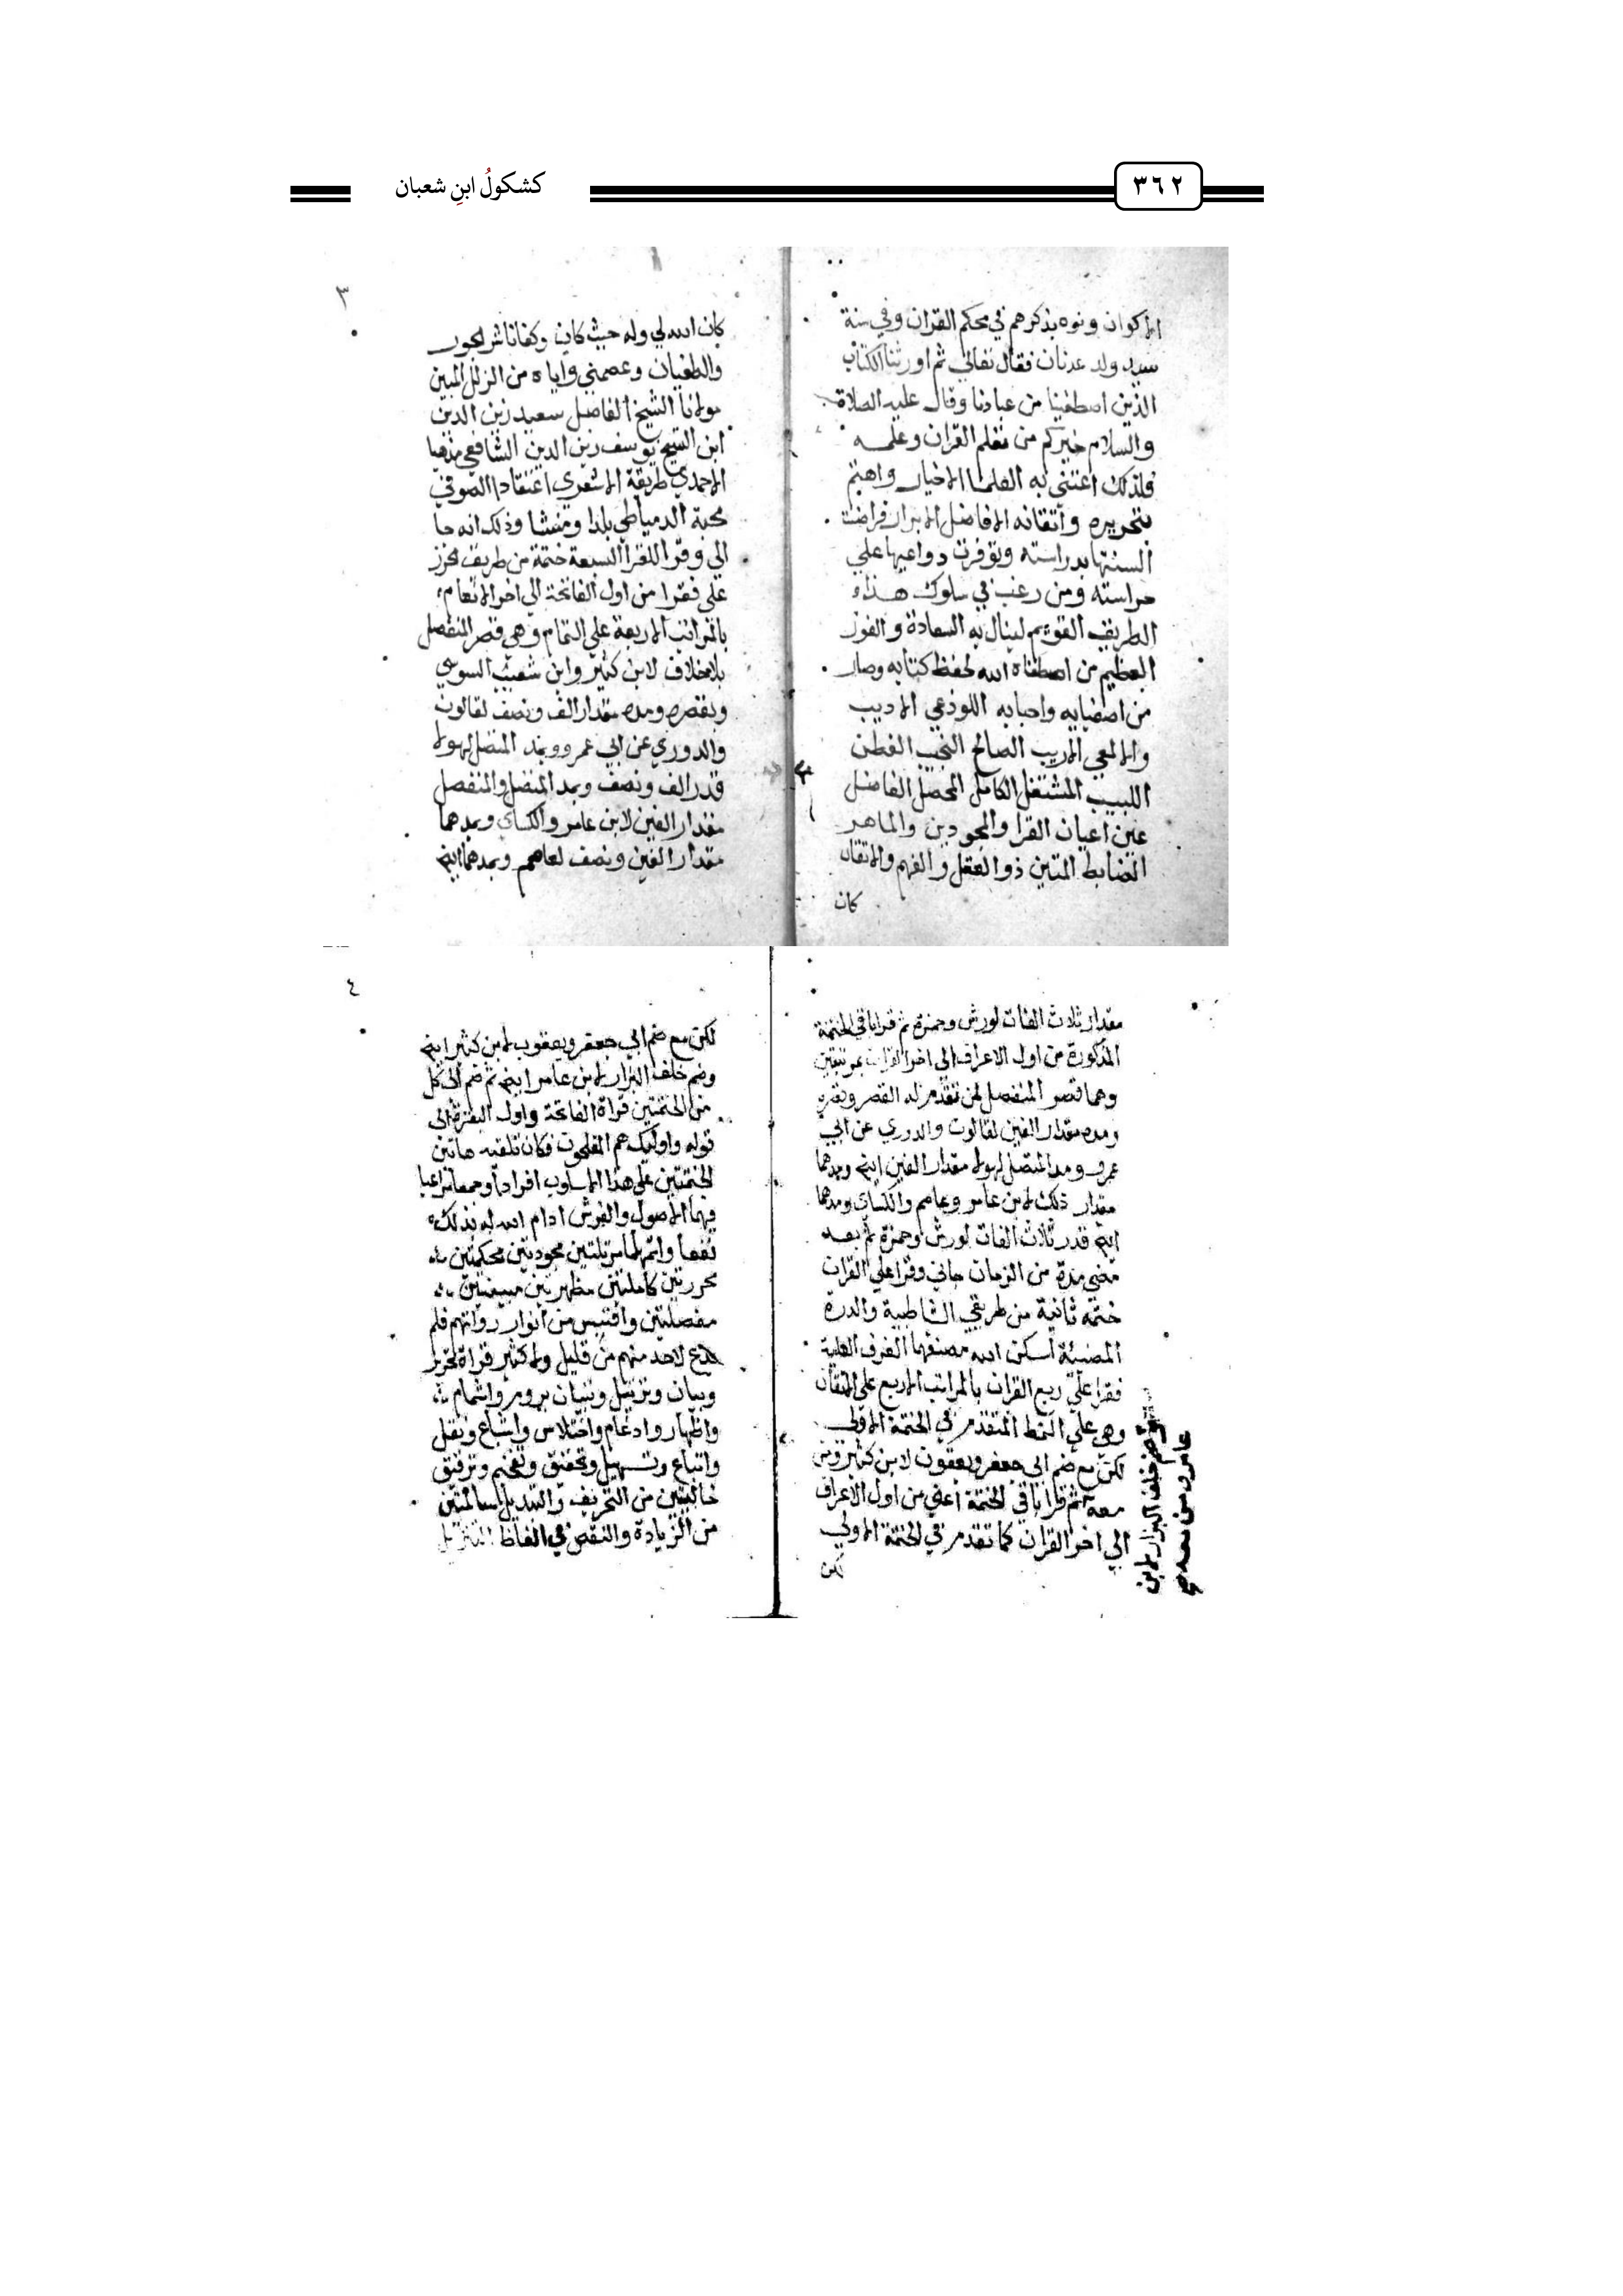 كشكولُ ابنِ شعبان
٣٦٢
الاكوان ونوه بذكرهم في محكم القران وفي سنة
سيد ولد عدنان فقال تعالى ثم اورثنا الكتاب
الذين اصطفينا من عبادنا وقال عليه الصلاة
والسلام خيركم من تعلم القران وعلمه
فلذلك اعتنى به العلما الاخيار واهتم
بتحريره واتقانه الافاضل الابرار فراضت
السنتها بدراسته وتوفرت دواعيها علي
حراسته ومن رغب في سلوك هذا
الطريق القويم لينال به السعادة والفوز
العظيم من اصطفاه الله لحفظ كتابه وصار
من اصفيايه واحبابه اللوذعي الاديب
والالمعي الاريب الصالح النجيب الفطن
اللبيب المشتغل الكامل المحصل الفاضل
عين اعيان القرا والمجودين والماهر
الضابط المتين ذو العقل والفهم والاتقان
كان
٣
كان الله لي وله حيث كان وكفانا شر الجور
والطغيان وعصمني واياه من الزلل المبين
مولانا الشيخ الفاضل سعيد زين الدين
ابن الشيخ يوسف زين الدين الشافعي مذهبا
الاحمدي طريقة الاشعري اعتقادا الصوفي
محبة الدمياطي بلدا ومنشا وذلك انه جا
الي وقرا للقرا السبعة ختمة من طريق الحرز
علي فقرا من اول الفاتحة الى اخر الانعام
بالمراتب الاربعة علي التمام وهي قصر المنفصل
بلا خلاف لابن كثير وابن شعيب السوسي
وبقصره ومده مقدار الف ونصف لقالون
والدوري عن ابي عمرو وبمد المتصل لهولا
قدر الف ونصف وبمد المتصل والمنفصل
مقدار الفين لابن عامر والكساي وبمدهما
مقدار الفين ونصف لعاصم وبمدهما ايض
مقدار ثلاث الفات لورش وحمزة ثم قرا باقي الختمة
المذكورة من اول الاعراف الى اخر القران بمرتبتين
وهما قصر المنفصل لمن تقدم له القصر وبقصره
ومده مقدار الفين لقالون والدوري عن ابي
عمرو ومد المتصل لهولا مقدار الفين ايض وبمدهما
مقدار ذلك لابن عامر وعاصم والكساي وبمدهما
ايض قدر ثلاث الفات لورش وحمزة ثم بعد
مضي مدة من الزمان جاني وقرا علي القران
ختمة ثانية من طريقي الشاطبية والدرة
المضيئة اسكن الله مصنفها الغرف العلية
فقرا علي ربع القران بالمراتب الاربع على اتقان
وهي علي النمط المتقدم في الختمة الاولى
لكن مع ضم ابي جعفر ويعقوب لابن كثير ومن
معه ثم قرا باقي الختمة اعني من اول الاعراف
الي اخر القران كما تقدم في الختمة الاولي
لكن
ضم خلف البزار لابن
عامر ومن معه
٤
لكن مع ضم ابي جعفر ويعقوب لابن كثير ايض
وضم خلف البزار لابن عامر ايض ثم ضم الى كل
من الختمتين قراة الفاتحة واول البقرة الى
قوله واوليك هم المفلحون فكان تلقيه هاتين
الختمتين علي هذا الاسلوب افرادا وجمعا مراعيا
فيهما الاصول والفرش ادام الله له بذلك
نفعا واتمهما مرتلتين مجودتين محكمتين
محررتين كاملتين مظهرتين مبينتين
مفصلتين واقتبس من انوار رواتهم فلم
يدع لاحد منهم من قليل ولا كثير قراة تحرير
وبيان وترتيل وتبيان بروم واشمام
واظهار وادغام واختلاس واشباع ونقل
واتباع وتسهيل وتحقيق وتفخيم وترقيق
خاليتين من التحريف والتبديل سالمتين
من الزيادة والنقص في الفاظ التنزيل